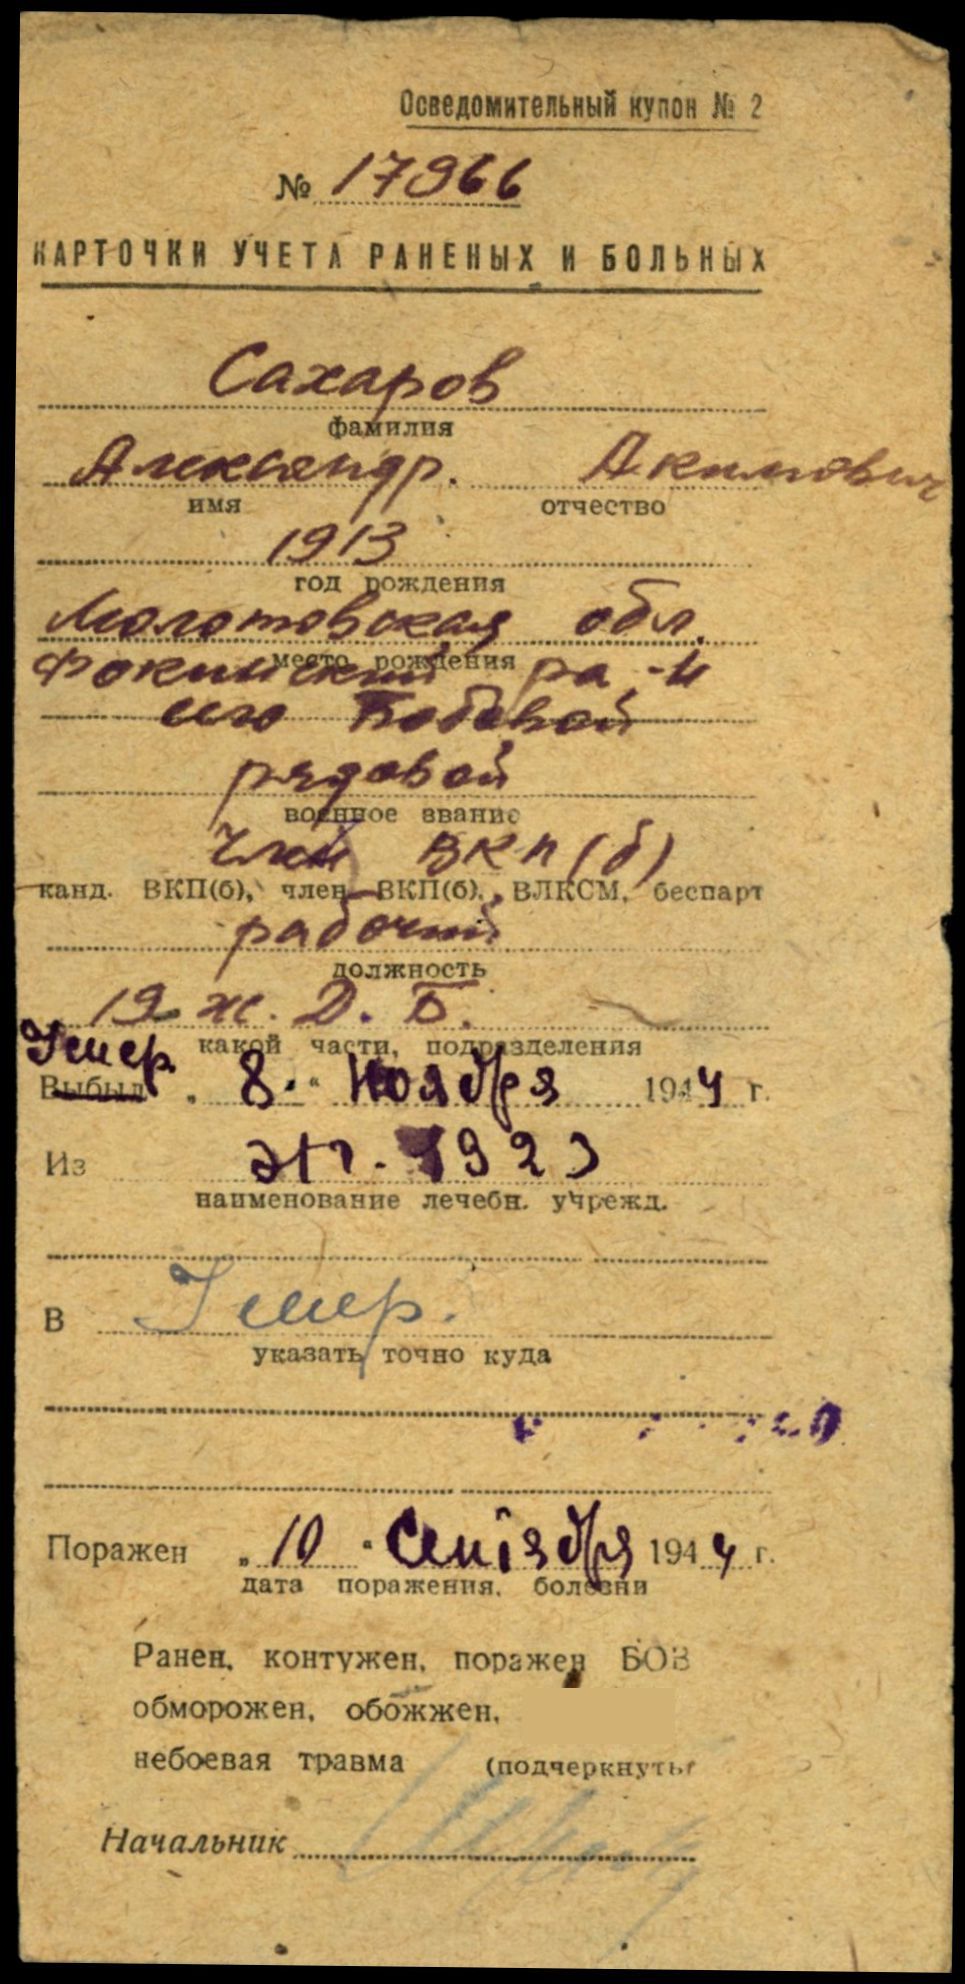 Осведомительный купон № 2
№ 17966
КАРТОЧКИ УЧЕТА РАНЕНЫХ И БОЛЬНЫХ
Сахаров
фамилия
Александр. Акимович
имя отчество
1913
год рождения
Молотовская обл.
место рождения
Фокинский ра-н
село
рядовой
военное звание
Член ВКП(б)
канд. ВКП(б), член ВКП(б), ВЛКСМ, беспарт
рабочий
должность
19 ж. Д. Б.
какой части, подразделения
Умер.
Выбыл „ 8 " Ноября 1944 г.
Из эг. 1923
наименование лечебн. учрежд.
В Умер.
указать точно куда
Поражен „ 10 " Сентября 1944 г.
дата поражения, болезни
Ранен, контужен, поражен БОВ
обморожен, обожжен,
небоевая травма (подчеркнуть)
Начальник